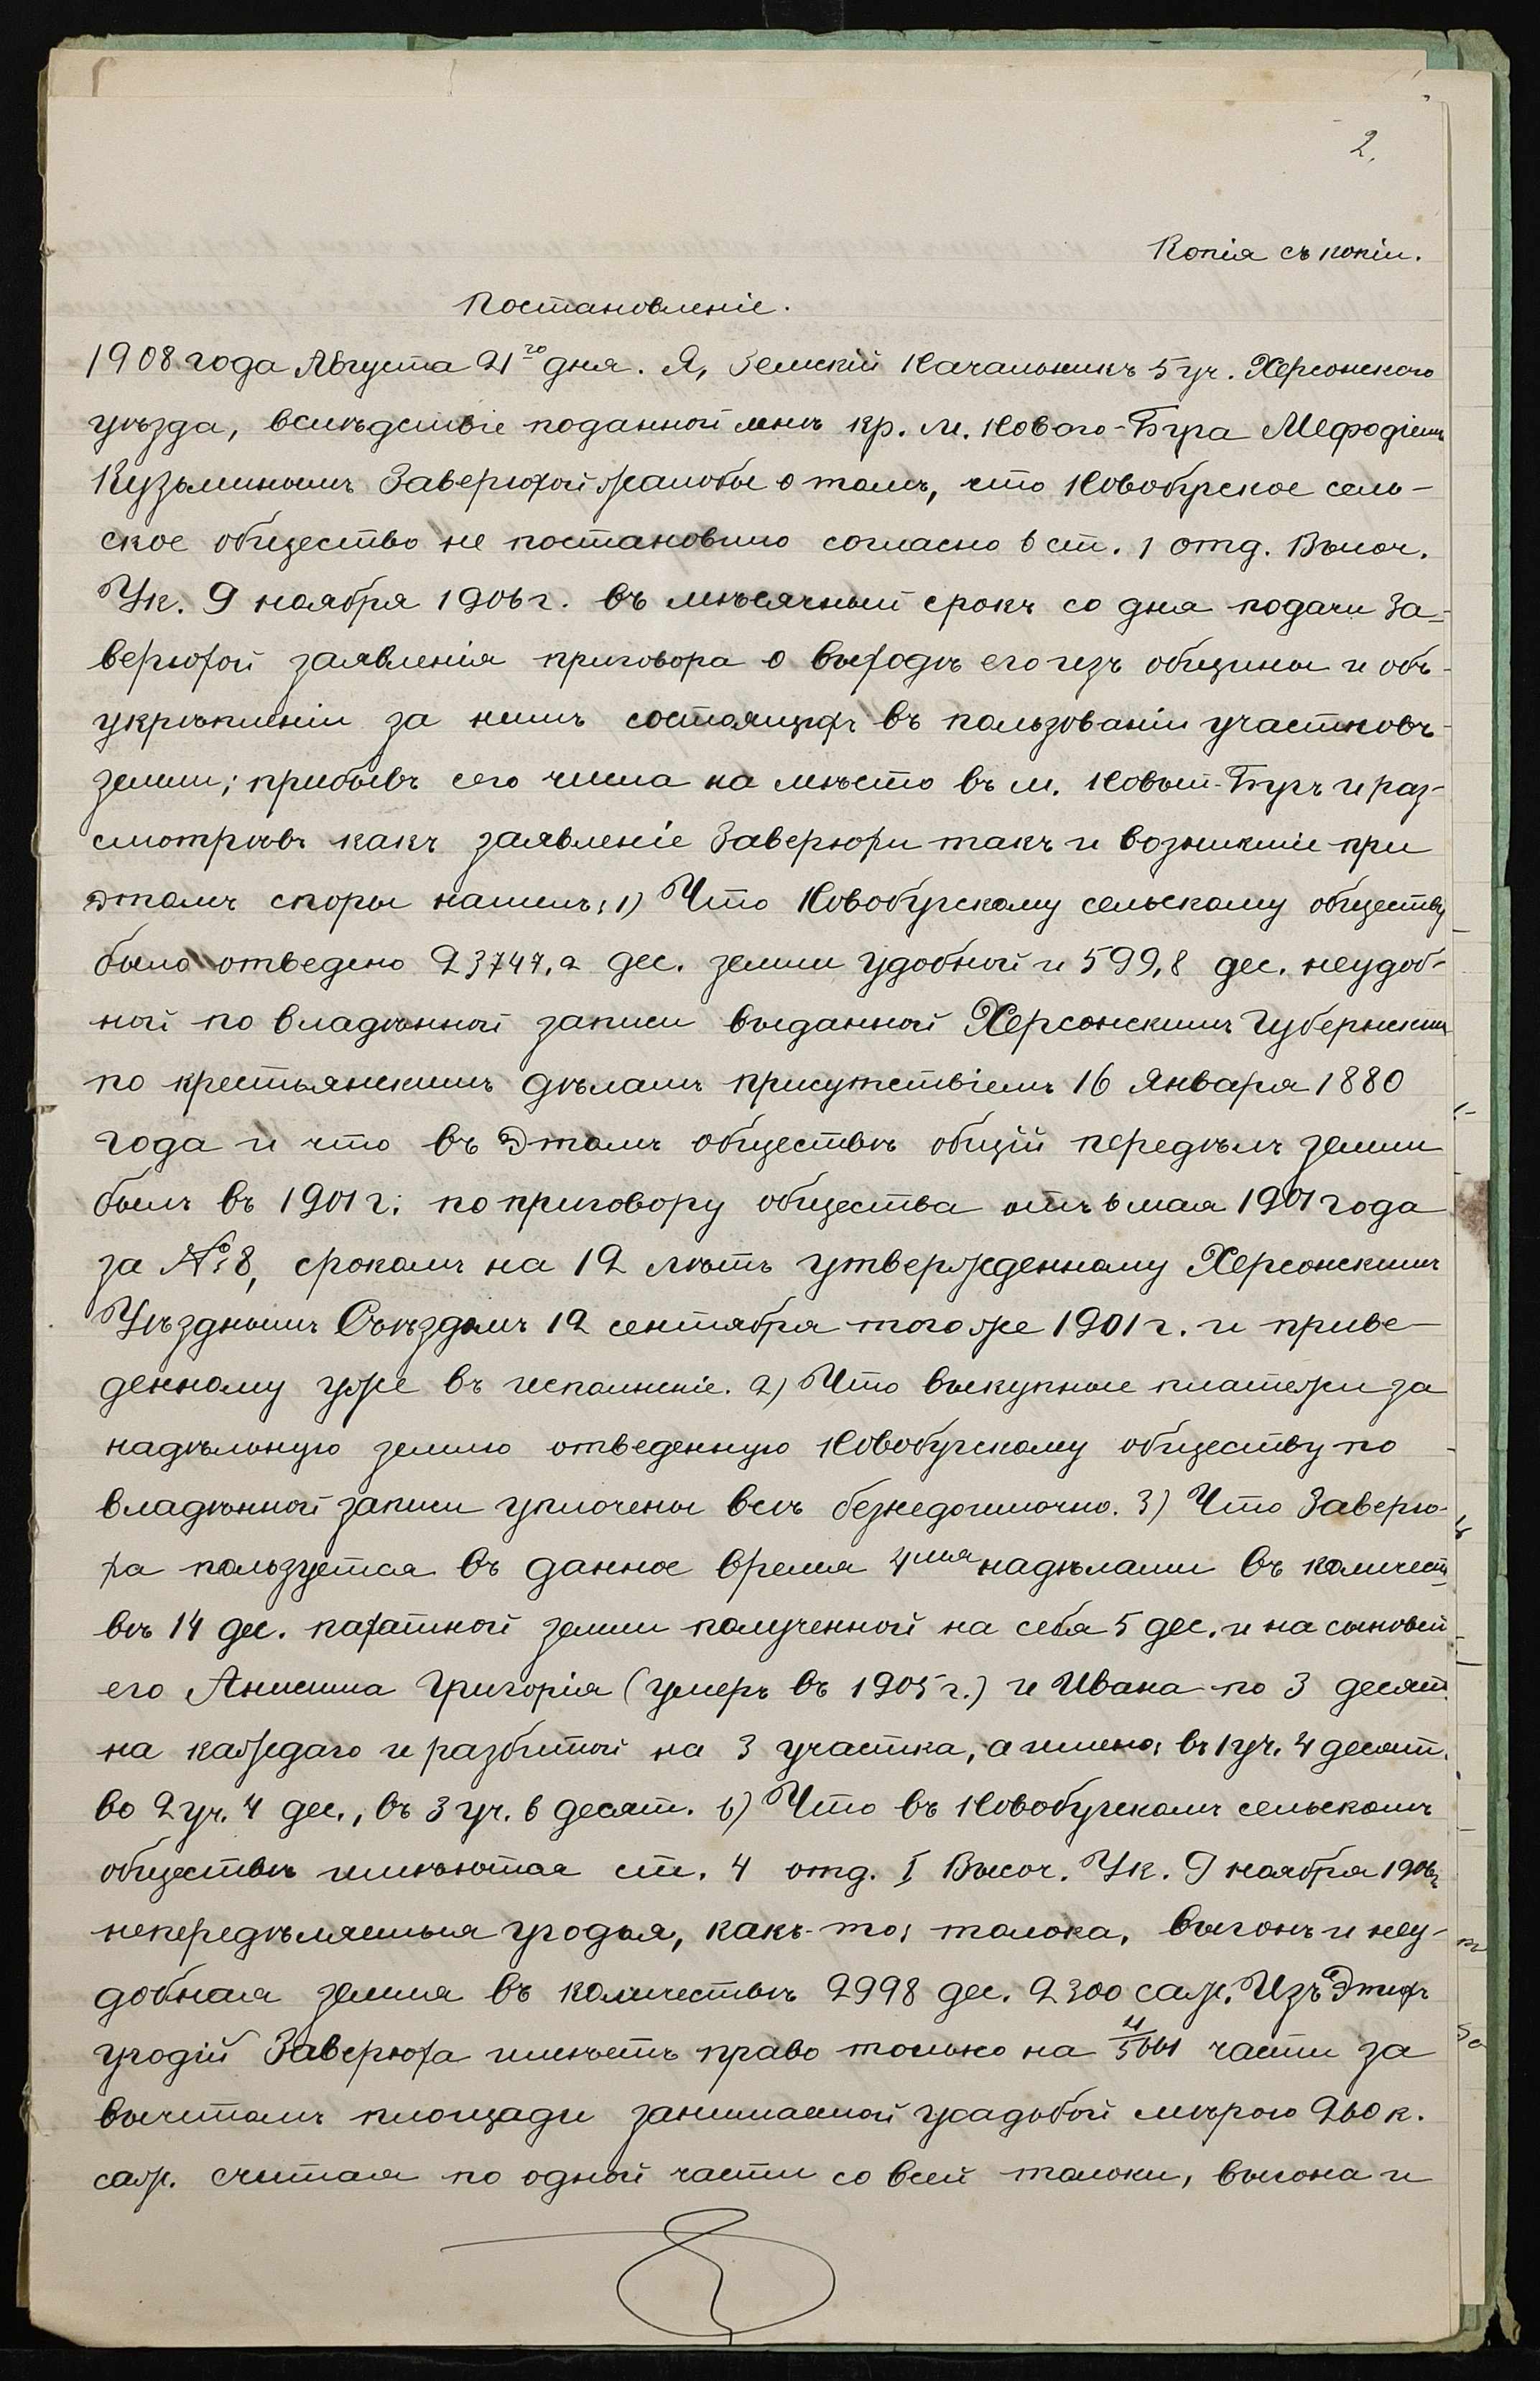 2.
Копія съ копіи.
Постановленіе.
1908 года Августа 21го дня. Я, Земскій Начальникъ 5 уч. Херсонского
уѣзда, вслѣдствіе поданной мнѣ кр. м. Нового-Буга Мефодіемъ
Кузьминымъ Заверюхой жалобы о томъ, что Новобугское сель-
ское общество не постановило согласно 6 ст. 1 отд. Высоч.
Ук. 9 ноября 1906 г. въ мѣсячный срокъ со дня подачи За-
верюхой заявленія приговора о выходѣ его изъ общины и объ
укрѣпленіи за нимъ состоящихъ въ пользованіи участковъ
земли; прибывъ сего числа на мѣсто въ м. Новый-Бугъ и раз-
смотрѣвъ какъ заявленіе Заверюхи такъ и возникшіе при
этомъ споры нашелъ: 1) Что Новобугскому сельскому обществу
было отведено 23747,2 дес. земли удобной и 599,8 дес. неудоб-
ной по владѣнной записи выданной Херсонскимъ Губернскимъ
по крестьянскимъ дѣламъ присутствіемъ 16 Января 1880
года и что въ этомъ обществѣ общій передѣлъ земли
былъ въ 1901 г. по приговору общества отъ 6 мая 1901 года
за № 8, срокомъ на 12 лѣтъ утвержденному Херсонскимъ
Уѣзднымъ Съѣздомъ 12 сентября того же 1901 г. и приве-
денному уже въ исполненіе. 2) Что выкупные платежи за
надѣльную землю отведенную Новобугскому обществу по
владѣнной записи уплочены всѣ безнедоимочно. 3) Что Заверю-
ха пользуется въ данное время 4мя надѣлами въ количест-
вѣ 14 дес. пахатной земли полученной на себя 5 дес. и на сыновей
его Анисима Григорія (умеръ въ 1905 г.) и Ивана по 3 десят.
на каждаго и разбитой на 3 участка, а имено: въ 1 уч. 4 десят.
во 2 уч. 4 дес., въ 3 уч. 6 десят. 6) Что въ Новобугскомъ сельскомъ
обществѣ имѣются ст. 4 отд. I Высоч. Ук. 9 ноября 1906 г.
непередѣляемыя угодья, какъ-то: толока, выгонъ и неу-
добная земля въ количествѣ 2998 дес. 2300 саж. Изъ этихъ
угодій Заверюха имѣетъ право только на 4/5661 части за
вычетомъ площади занимаемой усадьбой мѣрою 960 к.
саж. считая по одной части со всей толоки, выгона и